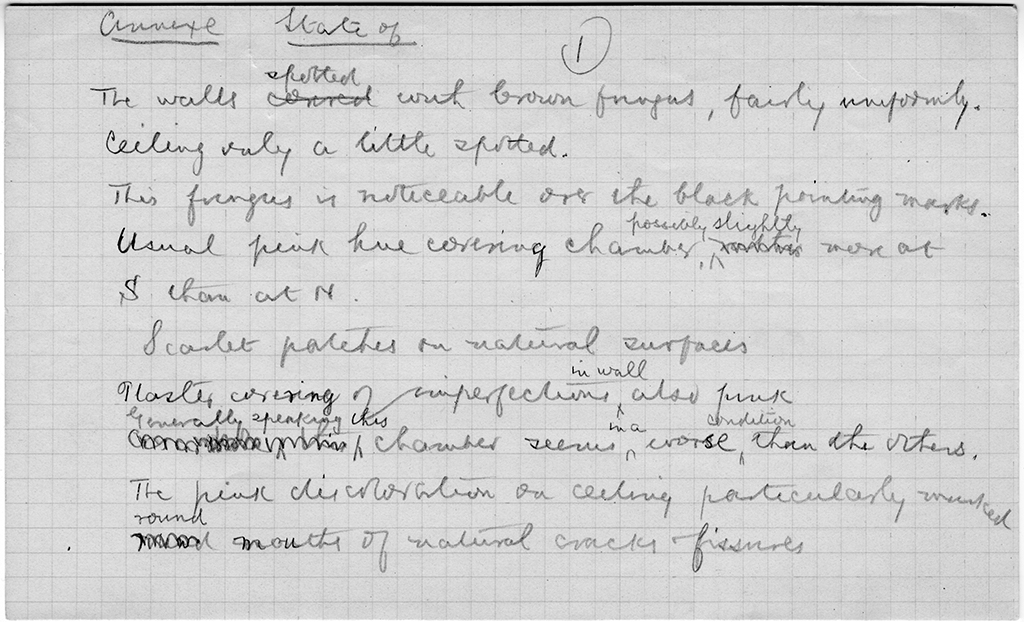 Annexe State of
1
spotted
The walls covered with brown fungus, fairly uniformly.
Ceiling only a little spotted.
This fungus is noticeable over the black painting marks.
possibly slightly
Usual pink hue covering chamber, more at
S than at N.
Scarlet patches on natural surfaces
in wall
Plaster covering of imperfections also pink
Generally speaking this in a condition
chamber seems worse than the others.
The pink discoloration on ceiling particularly marked
round
mouths of natural cracks fissures